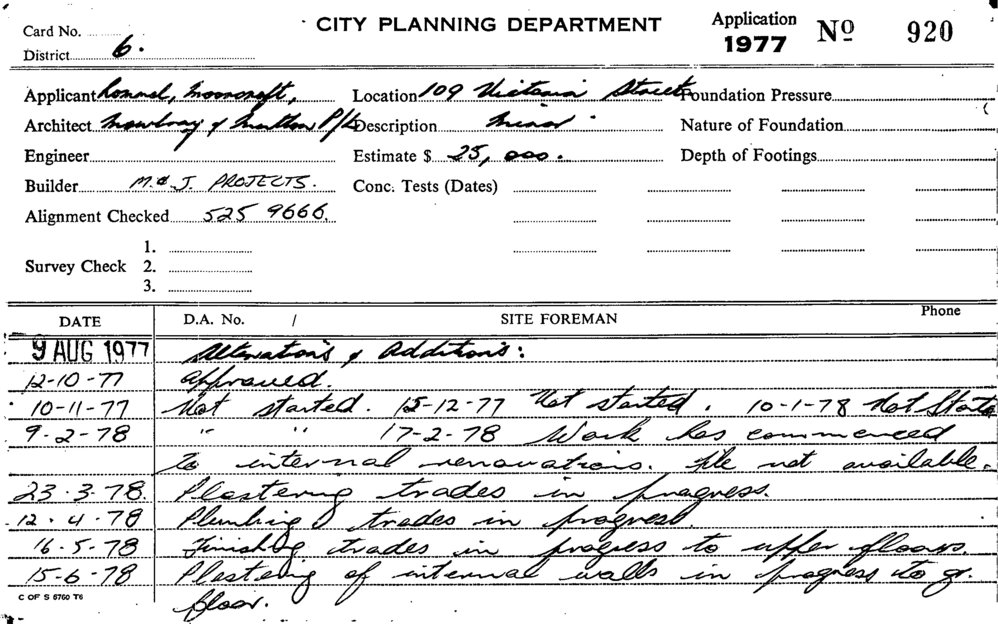 CITY PLANNING DEPARTMENT
Application 1977 No 920
Card No.
District 6.
Applicant Location 109 Victoria Street Foundation Pressure
Architect P/L Description Minor. Nature of Foundation
Engineer Estimate $ 25,000. Depth of Footings
Builder M. & J. PROJECTS. Conc. Tests (Dates)
Alignment Checked 525 9666.
1.
Survey Check 2.
3.
DATE D.A. No. / SITE FOREMAN Phone
9 AUG 1977 Alterations & Additions:
12-10-77 Approved.
10-11-77 Not started. 15-12-77 Not started. 10-1-78 Not Starte
9-2-78 " " 17-2-78 Work has commenced
to internal renovations. File not available.
23.3.78. Plastering trades in progress.
12.4.78 Plumbing trades in progress.
16-5-78 Finishing trades in progress to upper floors.
15-6-78 Plastering of internal walls in progress to gr.
floor.
C OF S 6760 T6